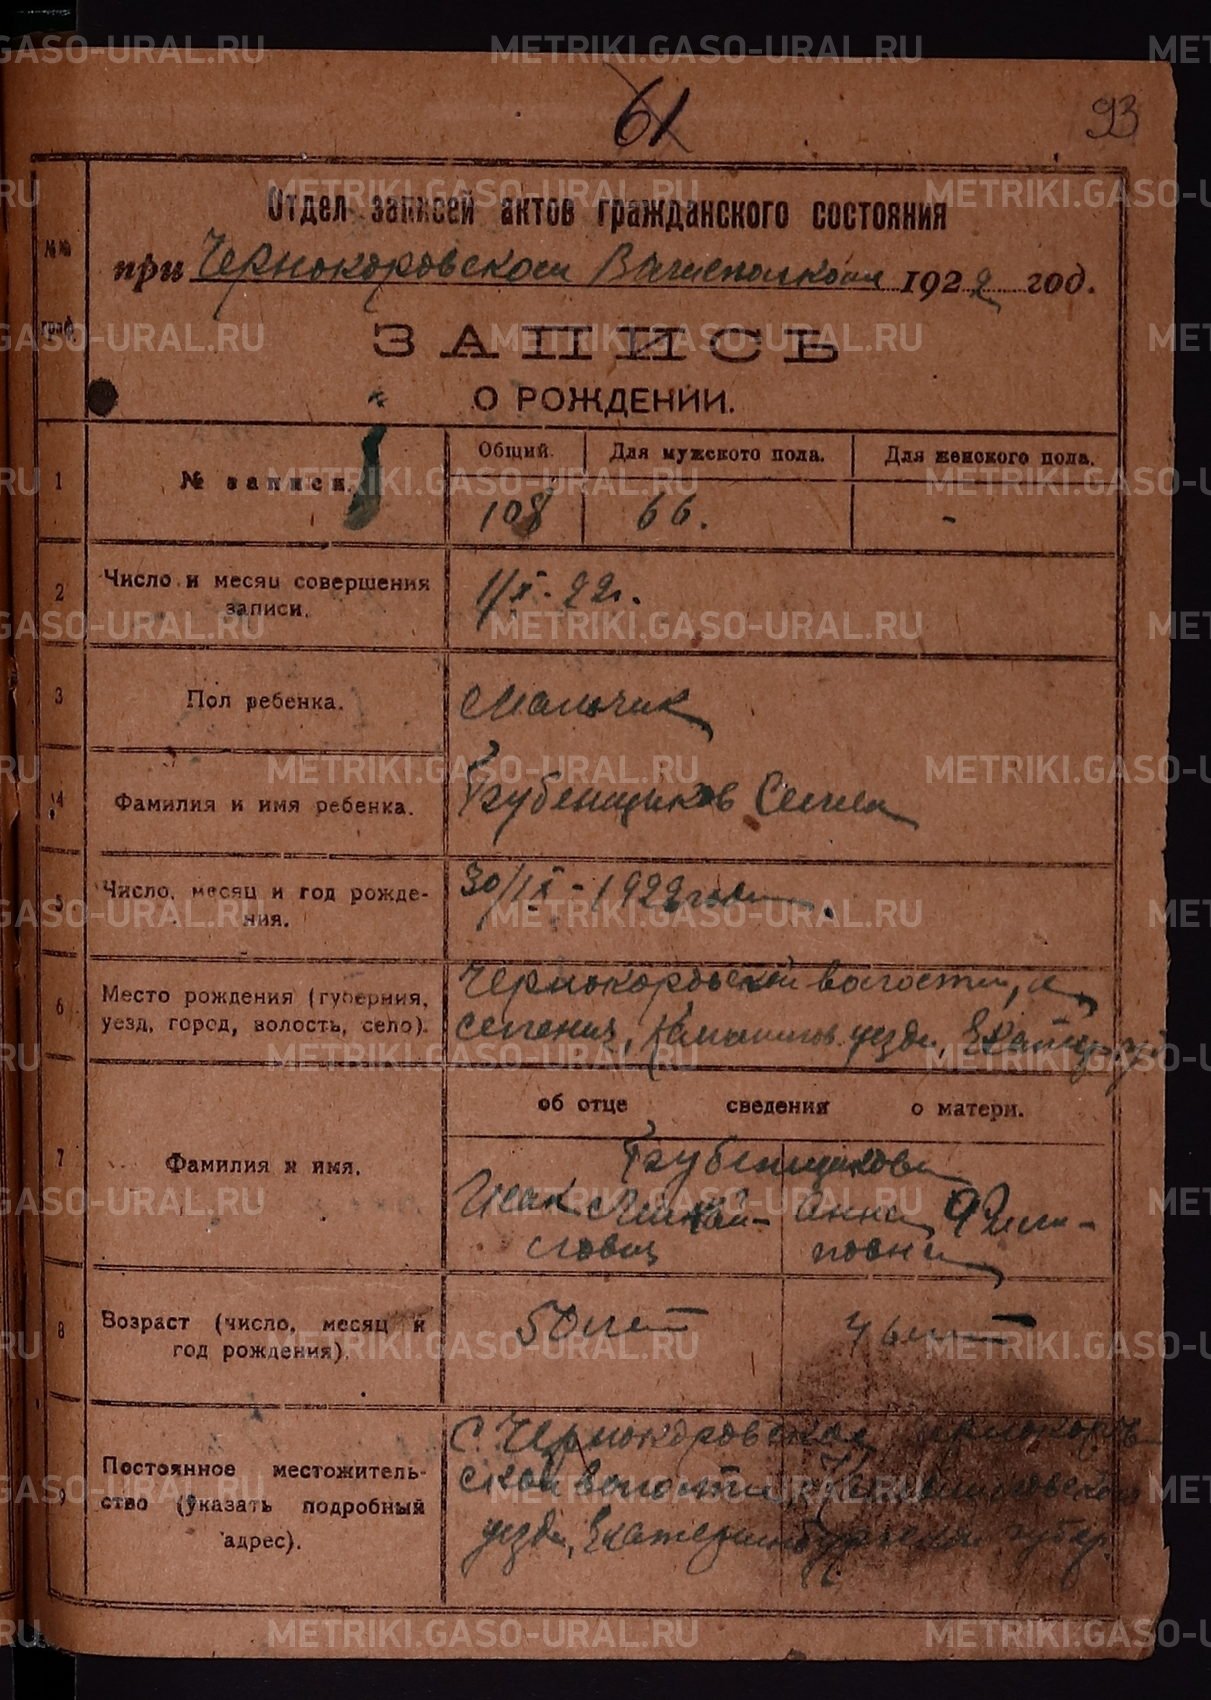 METRIKI.GASO-URAL.RU
61
93
Отдел записей актов гражданского состояния
№№ граф.
при Чернокоровском Волисполкоме 1922 год.
ЗАПИСЬ
О РОЖДЕНИИ.
1
№ записи.
Общий.
Для мужского пола.
Для женского пола.
108
66.
-
2
Число и месяц совершения
записи.
1/X-22г.
3
Пол ребенка.
Мальчик
4
Фамилия и имя ребенка.
Трубенщиков
5
Число, месяц и год рожде-
ния.
30/IX-1922 года.
6
Место рождения (губерния,
уезд, город, волость, село).
Чернокоровской волости,
селения, Камышлов. уезда, Екатер. гу
об отце сведения о матери.
7
Фамилия и имя.
Трубенщиковы
Исак Михай-
лович
Анна Фили-
повна
8
Возраст (число, месяц и
год рождения).
50 лет
46 лет
9
Постоянное местожитель-
ство (указать подробный
адрес).
С. Чернокоровское, Чернокоров-
ской волости, Камышловского
уезда, Екатеринбургской губер.